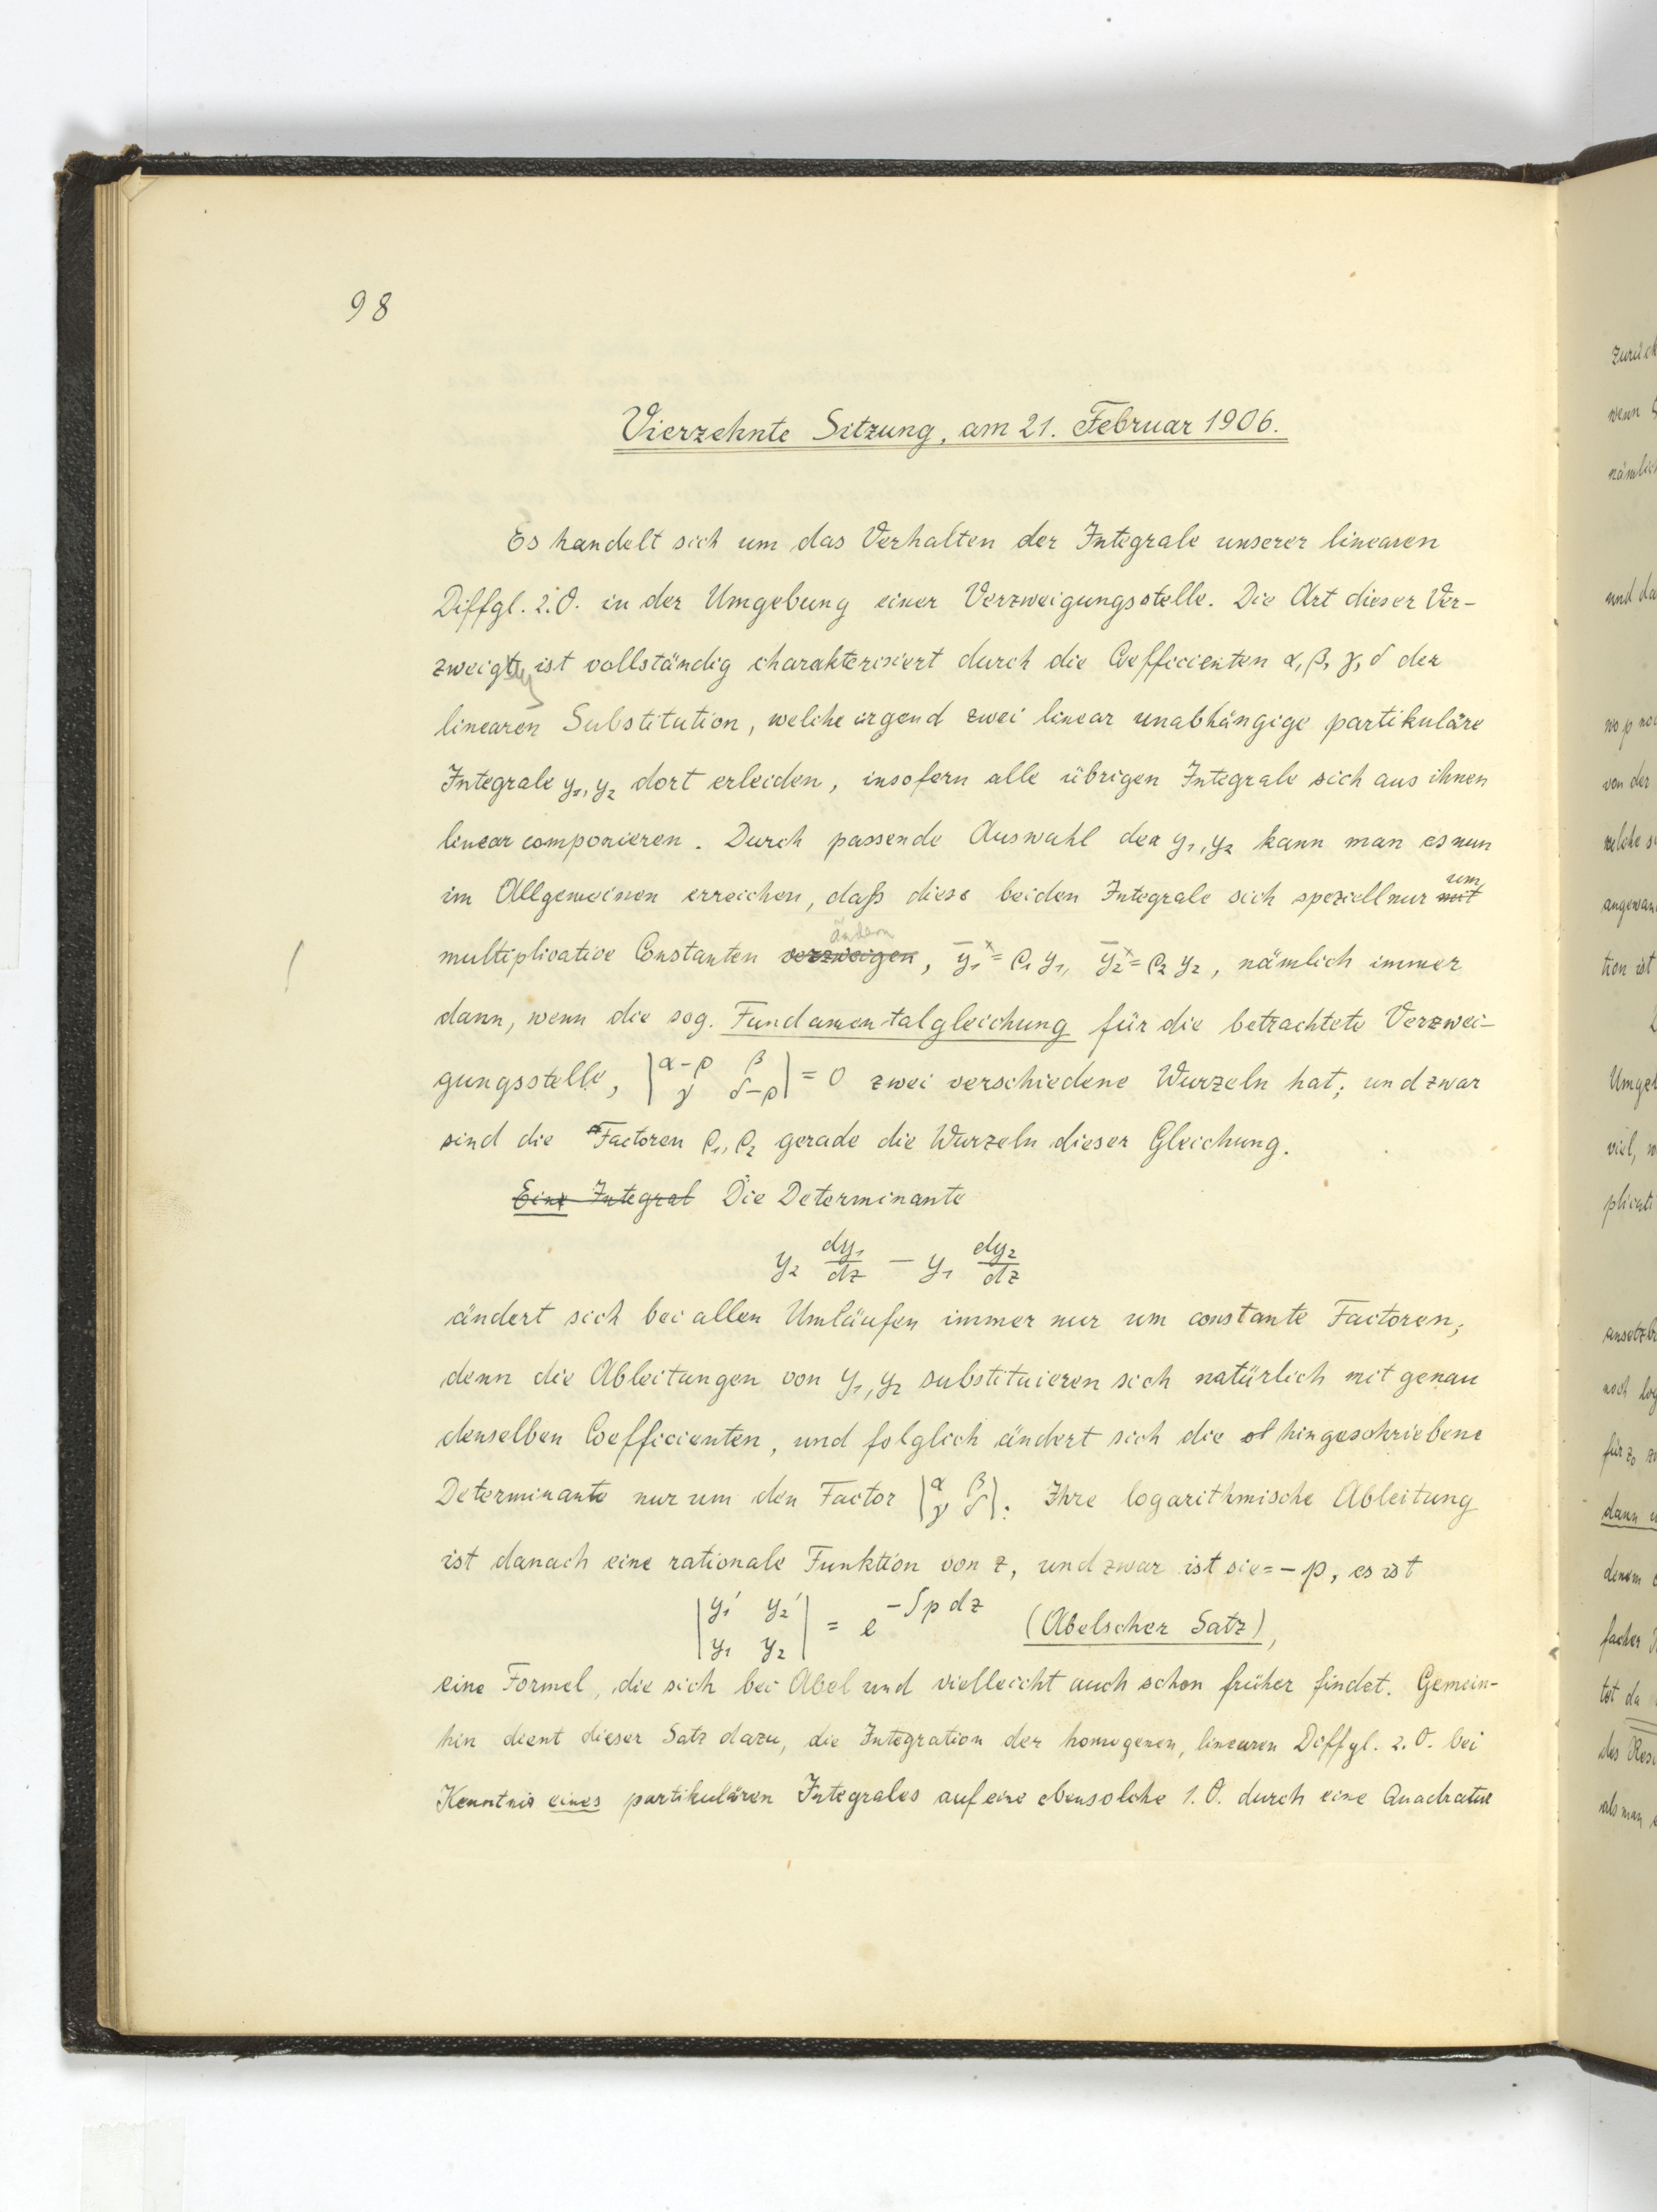 98
Vierzehnte Sitzung, am 21. Februar 1906.
Es handelt sich um das Verhalten der Integrale unserer linearen
Diffgl. 2. O. in der Umgebung einer Verzweigungsstelle. Die Art dieser Ver-
zweigg ist vollständig charakterisiert durch die Coefficienten α, β, γ, δ der
linearen Substitution, welche irgend zwei linear unabhängige partikuläre
Integrale y₁, y₂ dort erleiden, insofern alle übrigen Integrale sich aus ihnen
linear componieren. Durch passende Auswahl der y₁, y₂ kann man es nun
im Allgemeinen erreichen, daß diese beiden Integrale sich speziell nur mit um
multiplicative Constanten verzweigen ändern, y̅₁ˣ = ρ₁ y₁, y̅₂ˣ = ρ₂ y₂, nämlich immer
dann, wenn die sog. Fundamentalgleichung für die betrachtete Verzwei-
gungsstelle, |α-ρ β; γ δ-ρ| = 0 zwei verschiedene Wurzeln hat; und zwar
sind die Factoren ρ₁, ρ₂ gerade die Wurzeln dieser Gleichung.
Eine Integral Die Determinante
y₂ dy₁/dz - y₁ dy₂/dz
ändert sich bei allen Umläufen immer nur um constante Factoren;
denn die Ableitungen von y₁, y₂ substituieren sich natürlich mit genau
denselben Coefficienten, und folglich ändert sich die hingeschriebene
Determinante nur um den Factor |α β; γ δ|. Ihre logarithmische Ableitung
ist danach eine rationale Funktion von z, und zwar ist sie = - p, es ist
|y₁' y₂'; y₁ y₂| = e^(-∫p dz) (Abelscher Satz),
eine Formel, die sich bei Abel und vielleicht auch schon früher findet. Gemein-
hin dient dieser Satz dazu, die Integration der homogenen, linearen Diffgl. 2. O. bei
Kenntnis eines partikulären Integrales auf eine ebensolche 1. O. durch eine Quadratur